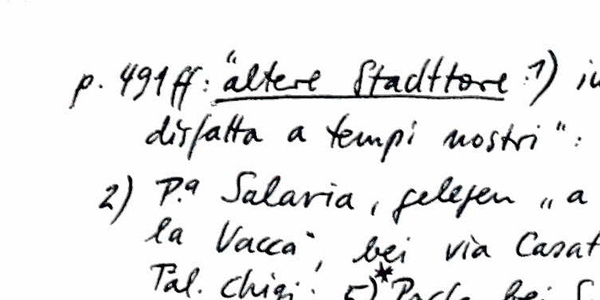 p. 491ff: "ältere Stadttore: 1)
disfatta a tempi nostri":
2) P.ª Salaria, gelegen „a
la Vacca", bei via
Pal. Chigi. 5)* Porta bei